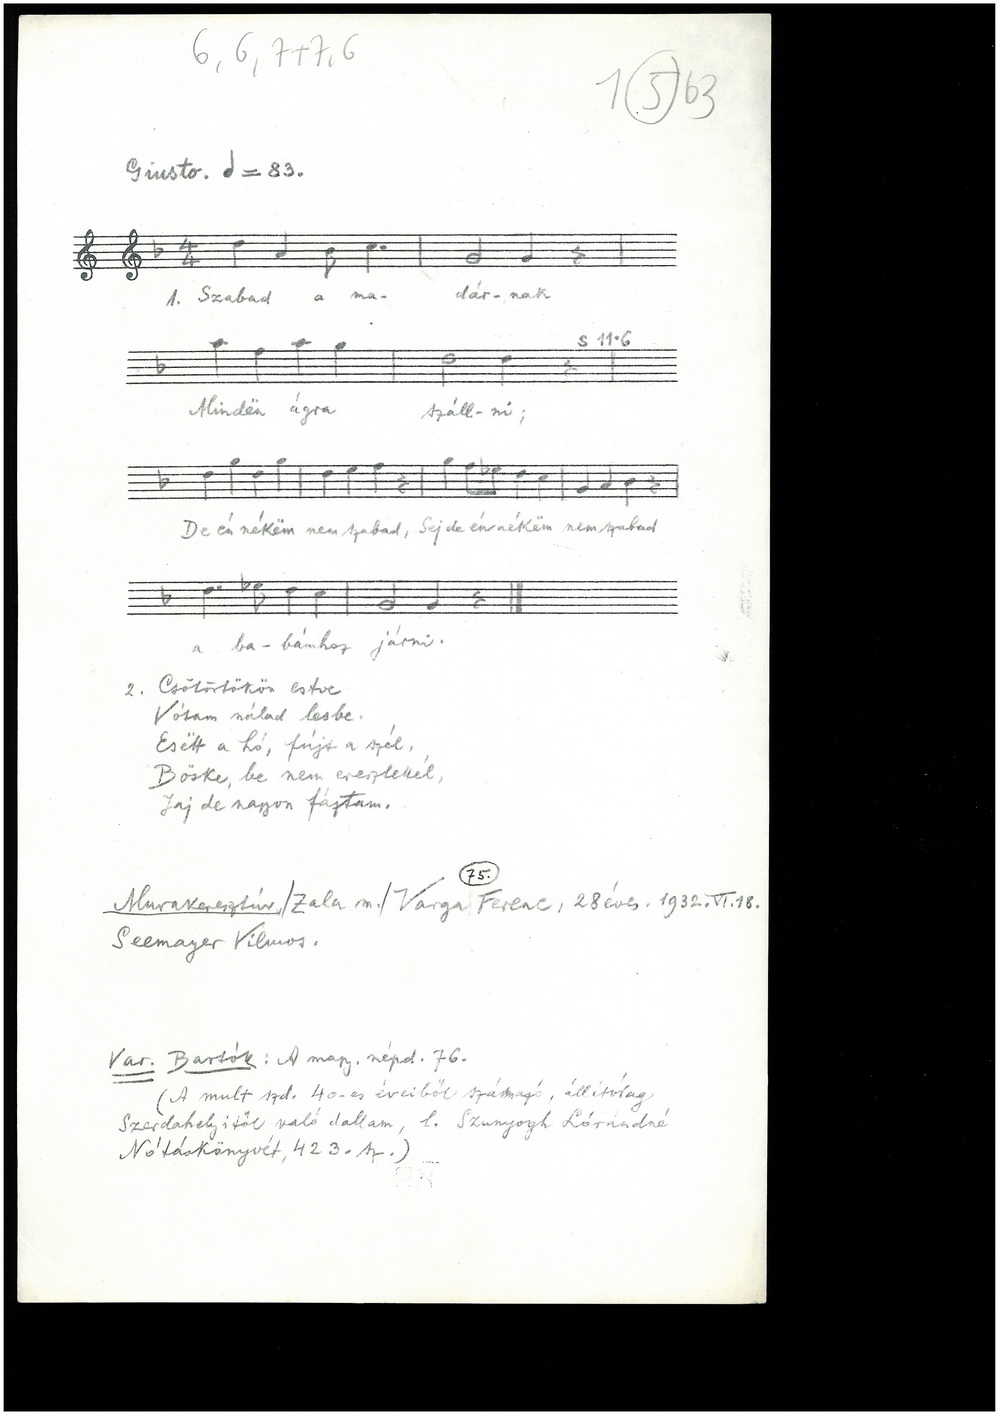 6, 6, 7+7, 6
1 (5) 63
Giusto. d = 83.
4
4
1. Szabad a ma- dár- nak
s 11·6
Mindën ágra száll- ni;
De én nékëm nem szabad, Sej de én nékëm nem szabad
a ba- bámhoz járni.
2. Csötörtökön estve
Vótam nálad lesbe.
Esëtt a hó, fújt a szél,
Böske, be nem eresztettél,
Jaj de nagyon fáztam.
75.
Murakeresztúr, /Zala m./ Varga Ferenc, 28 éves. 1932. VI. 18.
Seemayer Vilmos.
Var. Bartók: A magy. népd. 76.
(A mult szd. 40-es éveiből származó, állítólag
Szerdahelyitől való dallam, l. Szunyogh Lórándné
Nótáskönyvét, 423. sz.)